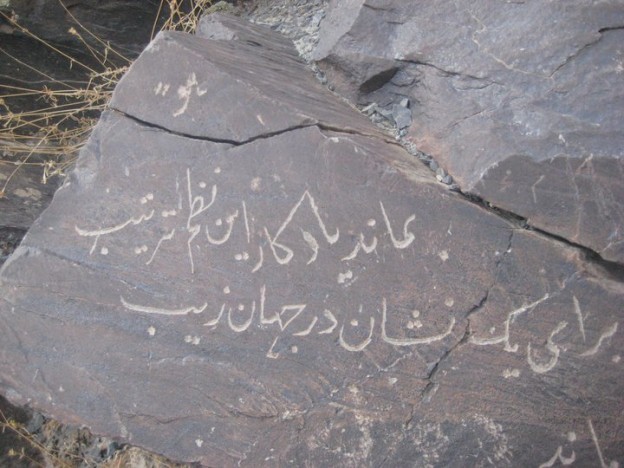 هو
بماند یادگار این نظم الترتیب
برای یک نشان در جهان زیب